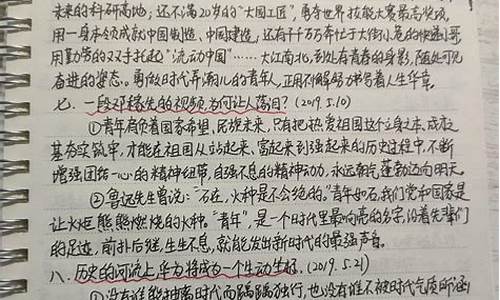 未来的科研高地；还不满20岁的“大国工匠”，勇夺世界技能大赛最高奖项，
用一身本领成就中国制造、中国建造；还有千千万万奔忙于大街小巷的快递小哥
用勤劳的双手托起“流动中国”……大江南北，到处有青春的身影，随处可见
奋进的姿态。勇做时代弄潮儿的青年人，正用不懈努力书写着人生华章。
七、一段邓稼先的视频，为何让人落泪？(2019.5.10)
①青年肩负着国家希望，民族未来，只有把热爱祖国这个立身之本、成才之
基夯实筑牢，才能在祖国从站起来、富起来到强起来的历史过程中，不断
增强团结一心的精神纽带，自强不息的精神动力，永远朝气蓬勃迈向明天。
②鲁迅先生曾说：“石在，火种是不会绝的。”青年如石，我们党和国家是
让火炬熊熊燃烧的火种。“青年”，是一个时代里最响亮的名字，沿着先辈们
的足迹，前扑后继，生生不息，就能发出新时代的最强声音。
八、历史的河流上，华为将成为一个生动坐标。(2019.5.21)
①没有谁能抽离时代而踽踽独行，也没有谁不被时代气质所涵